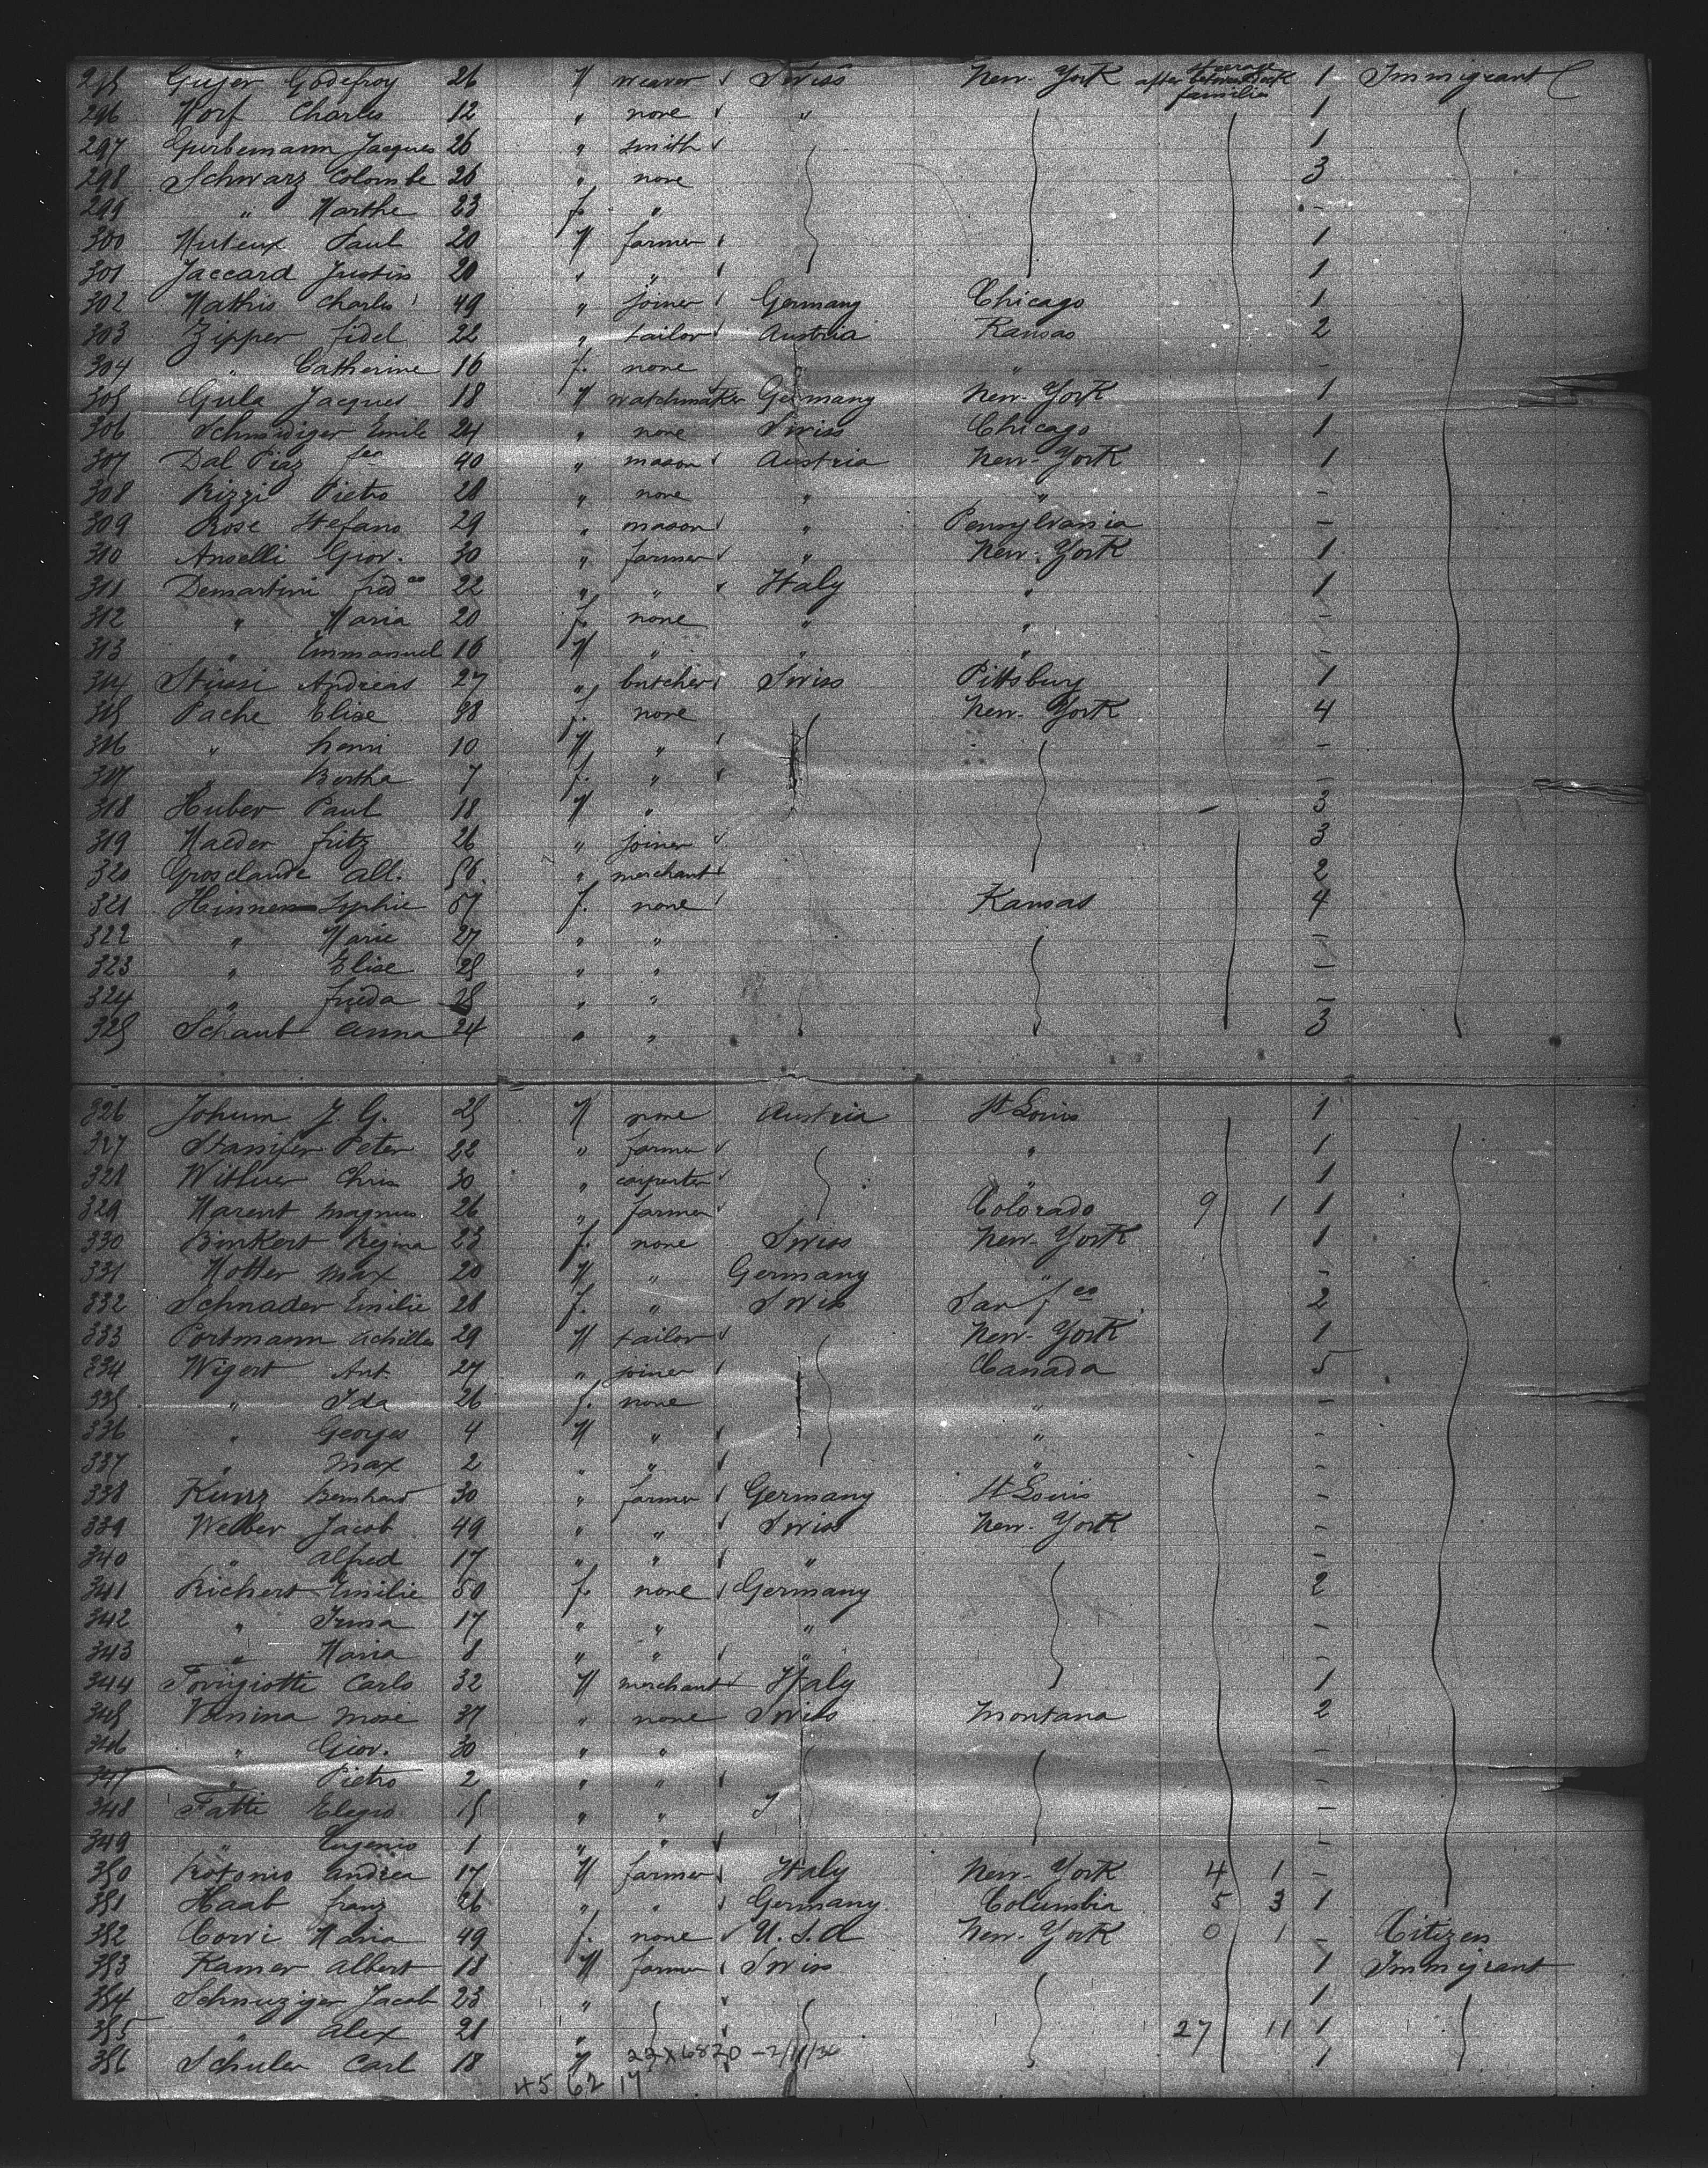 295 Gujer Godefroy 26 M weaver Swiss New-York steerage after between deck families 1 Immigrant
296 Morf Charles 12 " none " 1
297 Gurbemann Jacques 26 " smith 1
298 Schwarz Colombe 26 " none 3
299 " Marthe 23 f. " -
300 Muteux Paul 20 M farmer 1
301 Jaccard Justin 20 " " 1
302 Mathis Charles 49 " joiner Germany Chicago 1
303 Zipper fidel 22 " tailor Austria Kansas 2
304 " Catherine 16 f. none " " -
305 Gula Jacques 18 M watchmaker Germany New-York 1
306 Schmidiger Emile 24 " none Swiss Chicago 1
307 Dal Piaz fco 40 " mason Austria New-York 1
308 Rizzi Pietro 28 " none " " -
309 Rose Stefano 29 " mason " Pensylvania -
310 Anselli Giov. 30 " farmer " New-York 1
311 Demartini fredco 22 " " Italy " 1
312 " Maria 20 f. none " " -
313 " Emmanuel 16 M " " " -
314 Stüssi Andreas 27 " butcher Swiss Pittsburg 1
315 Pache Elise 38 f. none New-York 4
316 " henri 10 M " -
317 " Bertha 7 f. " -
318 Huber Paul 18 M " - 3
319 Maeder fritz 26 " joiner 3
320 Grosclaude All. 56 " merchant 2
321 Hinnen Sophie 57 f. none Kansas 4
322 " Marie 27 " " -
323 " Elise 25 " " -
324 " frieda 28 " " -
325 Schaub Anna 24 " " 3
326 Johum J. G. 25 M none Austria St Louis 1
327 Stampfer Peter 22 " farmer " 1
328 Wither Chris 30 " carpenter " 1
329 Marent Magnus 26 " farmer Colorado 9 1 1
330 Binkert Regina 23 f. none Swiss New-York 1
331 Motter Max 20 M " Germany " -
332 Schnader Emilie 28 f. " Swiss San fco 2
333 Portmann Achilles 29 M tailor New-York 1
334 Wigert Ant. 27 " joiner Canada 5
335 " Ida 26 f. none " -
336 " Georges 4 M " " -
337 " Max 2 " " " -
338 Kunz Bernhard 30 " farmer Germany St Louis -
339 Welber Jacob 49 " " Swiss New-York -
340 " Alfred 17 " " " -
341 Richert Emilie 50 f. none Germany 2
342 " Irma 17 " " " -
343 " Maria 8 " " " -
344 Torrigiotti Carlo 32 M merchant Italy 1
345 Vanina Mose 37 " none Swiss Montana 2
346 " Giov. 30 " " -
347 " Pietro 2 " " -
348 Fatti Elegio 15 " " -
349 " Eugenio 1 " " -
350 Rotonio Andrea 17 M farmer Italy New-York 4 1 -
351 Haab franz 26 " " Germany Columbia 5 3 1
352 Corvi Maria 49 f. none U.S.A New-York 0 1 - Citizen
353 Kamer Albert 18 M farmer Swiss 1 Immigrant
354 Schnuziger Jacob 23 " 1
355 " Alex 21 " 27 11 1
356 Schuler Carl 18 M 1
45 62 17